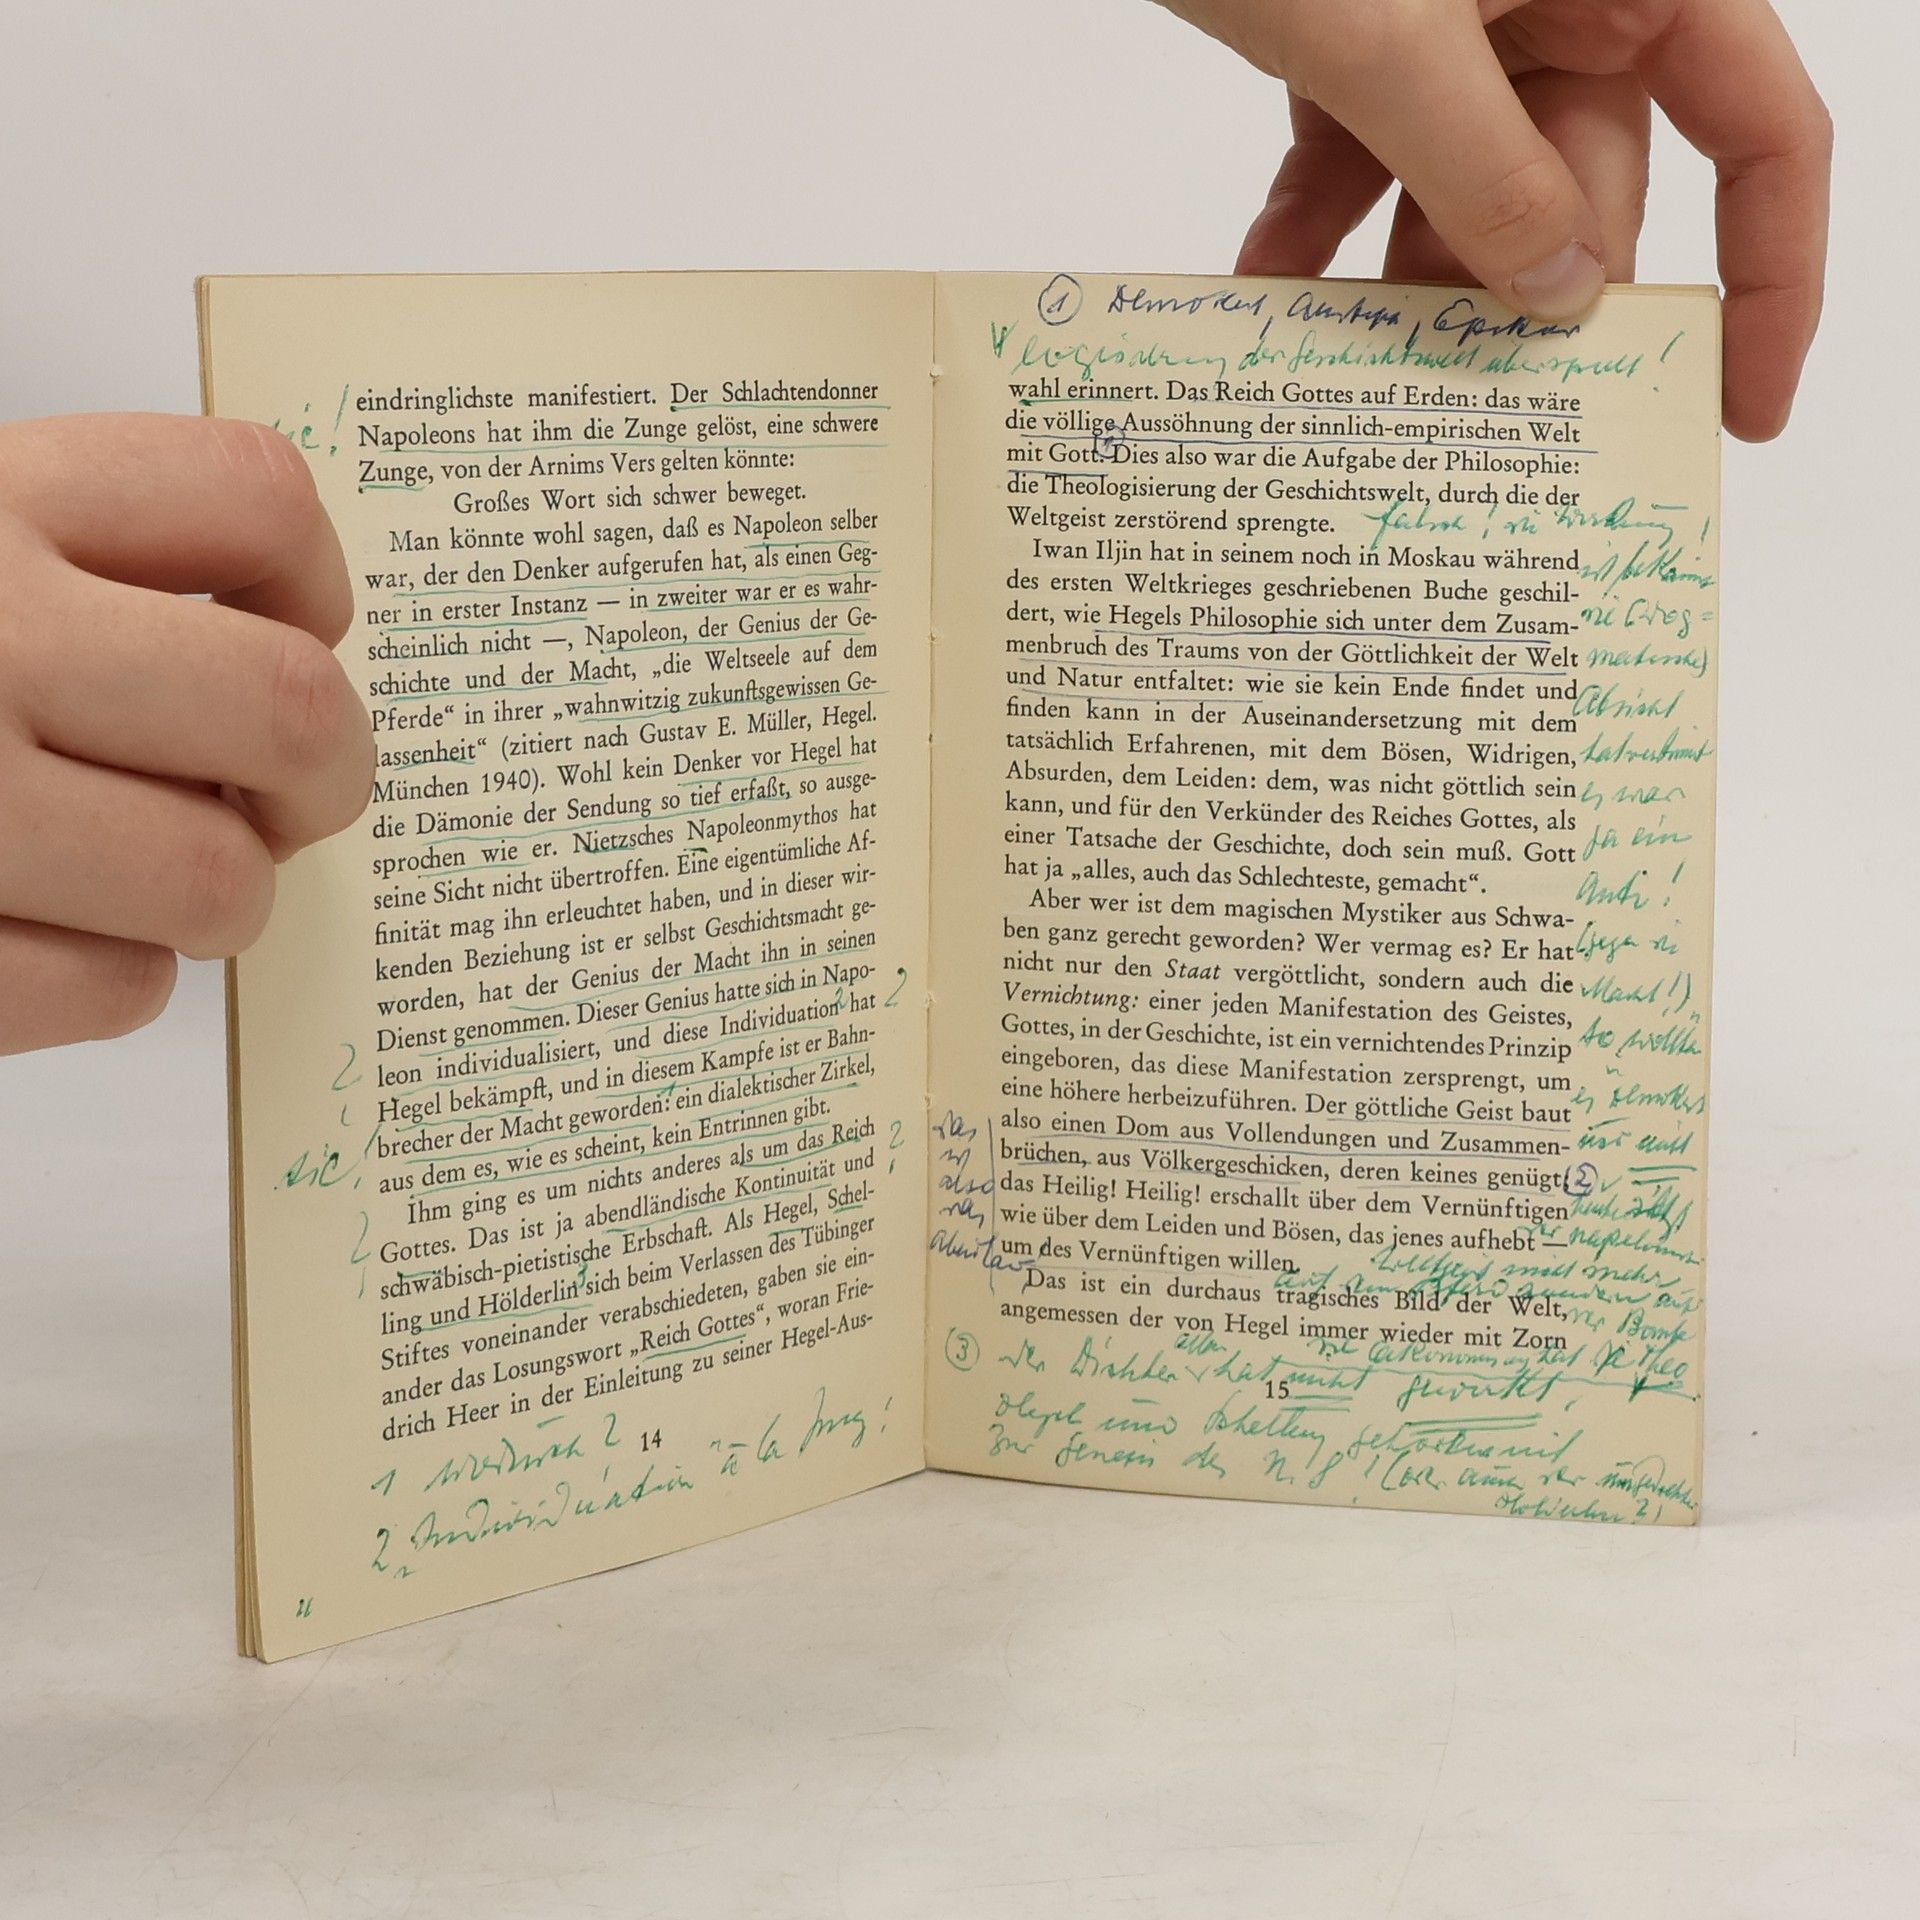 sic!
eindringlichste manifestiert. Der Schlachtendonner
Napoleons hat ihm die Zunge gelöst, eine schwere
Zunge, von der Arnims Vers gelten könnte:
Großes Wort sich schwer beweget.
Man könnte wohl sagen, daß es Napoleon selber
war, der den Denker aufgerufen hat, als einen Geg-
ner in erster Instanz — in zweiter war er es wahr-
scheinlich nicht —, Napoleon, der Genius der Ge-
schichte und der Macht, „die Weltseele auf dem
Pferde“ in ihrer „wahnwitzig zukunftsgewissen Ge-
lassenheit“ (zitiert nach Gustav E. Müller, Hegel.
München 1940). Wohl kein Denker vor Hegel hat
die Dämonie der Sendung so tief erfaßt, so ausge-
sprochen wie er. Nietzsches Napoleonmythos hat
seine Sicht nicht übertroffen. Eine eigentümliche Af-
finität mag ihn erleuchtet haben, und in dieser wir-
kenden Beziehung ist er selbst Geschichtsmacht ge-
worden, hat der Genius der Macht ihn in seinen
Dienst genommen. Dieser Genius hatte sich in Napo-
leon individualisiert, und diese Individuation hat
Hegel bekämpft, und in diesem Kampfe ist er Bahn-
brecher der Macht geworden: ein dialektischer Zirkel,
aus dem es, wie es scheint, kein Entrinnen gibt.
sic!
Ihm ging es um nichts anderes als um das Reich
Gottes. Das ist ja abendländische Kontinuität und
schwäbisch-pietistische Erbschaft. Als Hegel, Schel-
ling und Hölderlin sich beim Verlassen des Tübinger
Stiftes voneinander verabschiedeten, gaben sie ein-
ander das Losungswort „Reich Gottes“, woran Frie-
drich Heer in der Einleitung zu seiner Hegel-Aus-
14
1 wodurch?
2 Individuation à la Jung!
① Demokrit, Aristipp, Epikur
der Geschichtswelt überspült!
wahl erinnert. Das Reich Gottes auf Erden: das wäre
die völlige Aussöhnung der sinnlich-empirischen Welt
mit Gott. Dies also war die Aufgabe der Philosophie:
die Theologisierung der Geschichtswelt, durch die der
Weltgeist zerstörend sprengte.
falsch! die Wirkung!
Iwan Iljin hat in seinem noch in Moskau während
des ersten Weltkrieges geschriebenen Buche geschil-
dert, wie Hegels Philosophie sich unter dem Zusam-
menbruch des Traums von der Göttlichkeit der Welt
und Natur entfaltet: wie sie kein Ende findet und
finden kann in der Auseinandersetzung mit dem
tatsächlich Erfahrenen, mit dem Bösen, Widrigen,
Absurden, dem Leiden: dem, was nicht göttlich sein
kann, und für den Verkünder des Reiches Gottes, als
einer Tatsache der Geschichte, doch sein muß. Gott
hat ja „alles, auch das Schlechteste, gemacht“.
Aber wer ist dem magischen Mystiker aus Schwa-
ben ganz gerecht geworden? Wer vermag es? Er hat
nicht nur den Staat vergöttlicht, sondern auch die
Vernichtung: einer jeden Manifestation des Geistes,
Gottes, in der Geschichte, ist ein vernichtendes Prinzip
eingeboren, das diese Manifestation zersprengt, um
eine höhere herbeizuführen. Der göttliche Geist baut
also einen Dom aus Vollendungen und Zusammen-
brüchen, aus Völkergeschicken, deren keines genügt.
das Heilig! Heilig! erschallt über dem Vernünftigen
wie über dem Leiden und Bösen, das jenes aufhebt —
um des Vernünftigen willen.
Das ist ein durchaus tragisches Bild der Welt,
angemessen der von Hegel immer wieder mit Zorn
Absicht
es war
ja ein
Anti!
Macht!)
das
ist
also
das
③ der Dichter hat nicht gewirkt!
15
Hegel und Schelling gehören mit
zur Genesis des N. S.!